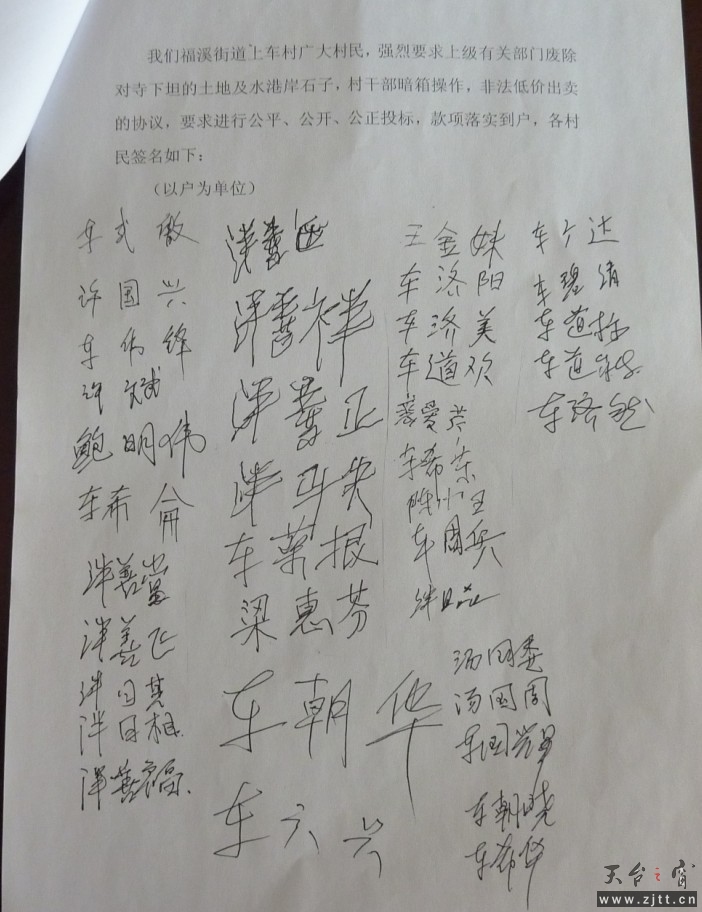 我们福溪街道上车村广大村民，强烈要求上级有关部门废除
对寺下坦的土地及水港岸石子，村干部暗箱操作，非法低价出卖
的协议，要求进行公平、公开、公正投标，款项落实到户，各村
民签名如下：
（以户为单位）
车式敏
许国兴
车伟锋
许斌
鲍明伟
车希
洋善富
洋善飞
洋日其
洋日相
洋善福
洋善
洋善祥
洋善正
洋
车荣根
梁惠芬
车朝华
车六兴
王金妹
车济阳
车济美
车道欢
爱芬
车希荣
陈
车国兵
汤国委
汤国周
车国
车朝晓
车希华
车个达
车
车道标
车道
车路
天台之窗
www.zjtt.cn